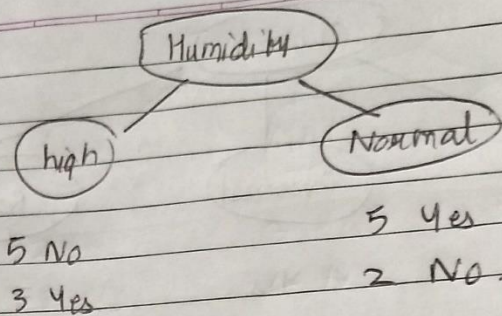 Humidity
high
Normal
5 No
3 Yes
5 Yes
2 No.